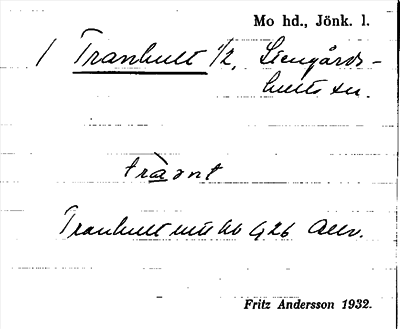 Mo hd., Jönk. l.
1 Tranhult 1/2, Stengårds-
hults sn.
tràant
Tranhult 426 Allv.
Fritz Andersson 1932.